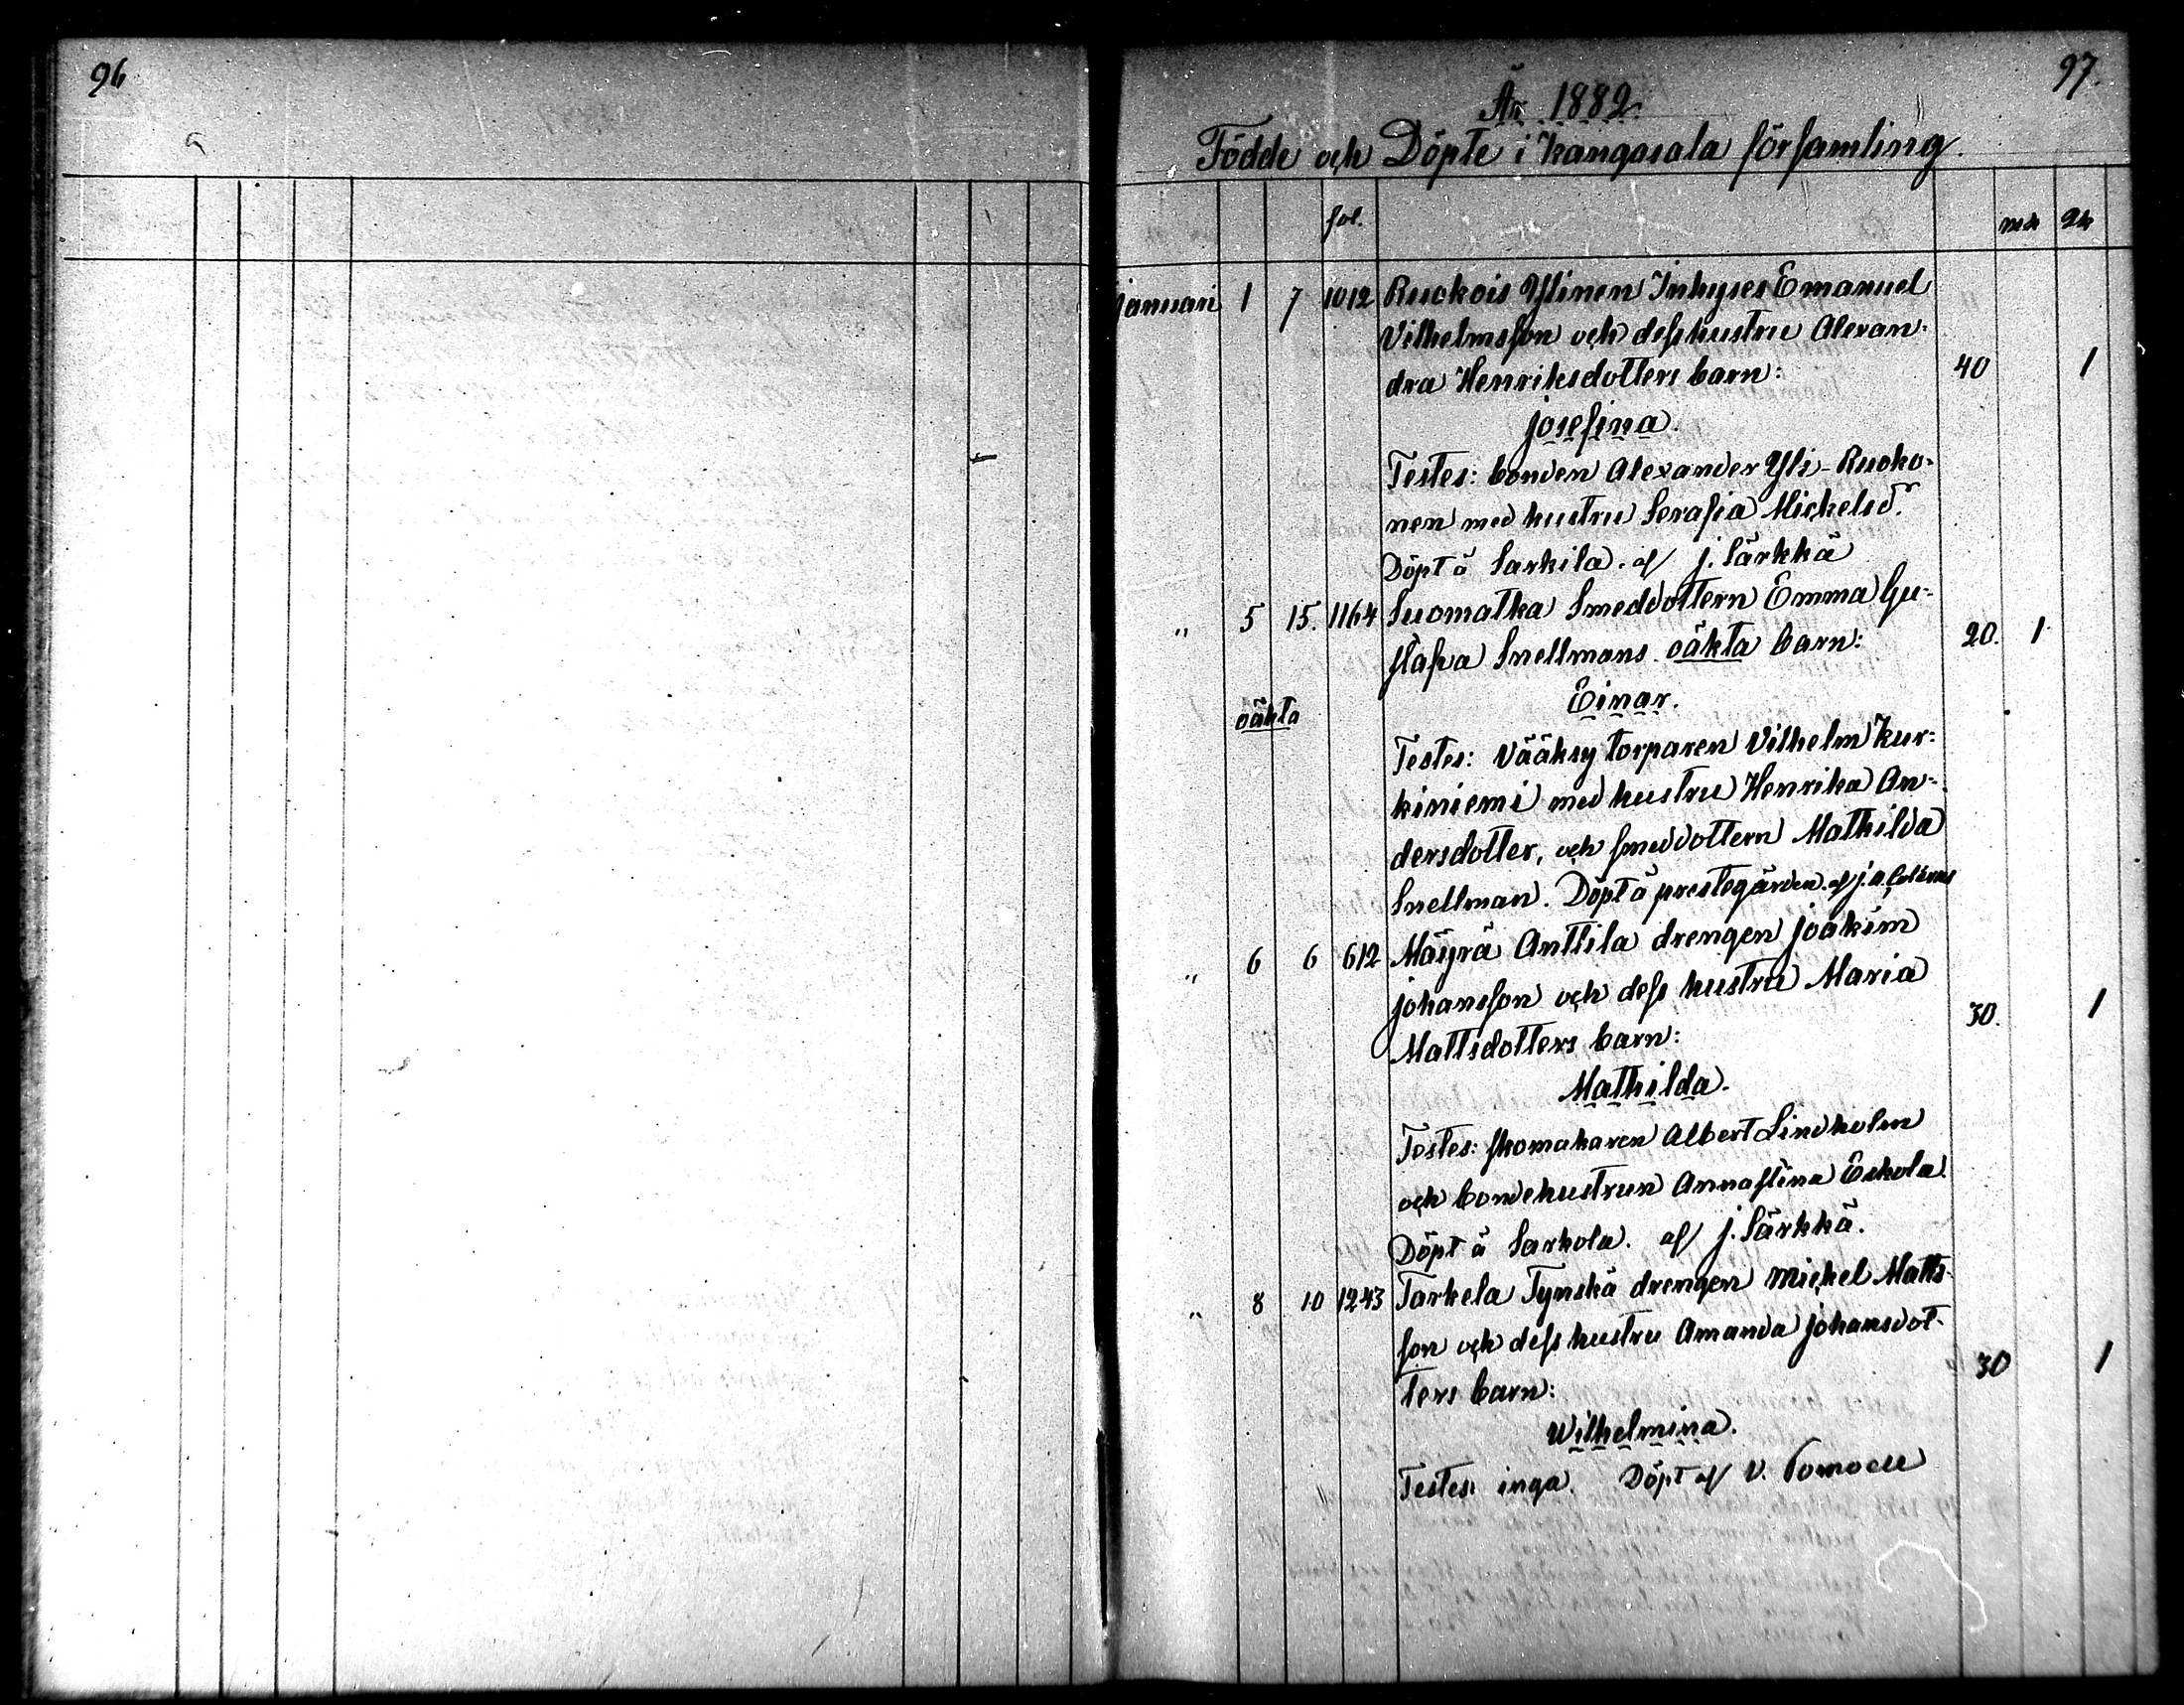 96
97.
År 1882.
Födde och Döpte i Kangasala församling.
fol. mk qk
Januari 1 7 1012 Ruokois Ylinen Inhyses Emanuel
Vilhelmsson och dess hustru Alexan-
dra Henriksdotters barn: 40 1
Josefina.
Testes: bonden Alexander Yli-Ruoko-
nen med hustru Serafia Mickelsdr.
Döpt å Sarkila. af J. Särkkä
" 5 15. 1164 Suomatka Smeddottern Emma Gu-
stafva Snellmans oäkta barn: 20. 1
oäkta Einar.
Testes: Vääksy torparen Vilhelm Kur-
kiniemi med hustru Henrika An-
dersdotter, och smeddottern Mathilda
Snellman. Döpt å prestegården. af J. A.
" 6 6 612 Mäyrä Anttila drengen Joakim
Johansson och dess hustru Maria
Mattsdotters barn: 30. 1
Mathilda.
Testes: skomakaren Albert Lindholm
och bondehustrun Annastina Eskola.
Döpt å Sarkola. af J. Särkkä.
" 8 10 1243 Tarkela Tynskä drengen Mickel Matts-
son och dess hustru Amanda Johansdot-
ters barn: 30 1
Wilhelmina.
Testes: inga. Döpt af V.